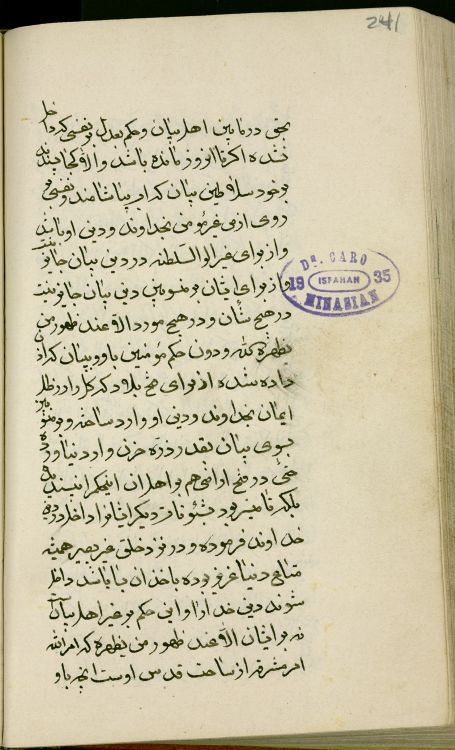 241
بحق در مابین اهل بیان و حکم بعدل بر نفسی که داخل
نشده اگر تا آنروز مانده باشد و الا کجا پسندد
بر خود سلاطین بیان که آب بیاشامند و نفسی بر
روی ارض غیر مؤمن بخداوند و دین او باشد
و از برای غیر اولو السلطنه در دین بیان جائز نیست
و از برای ایشان و منسوبین دین بیان جائز نیست
در هیچ شأن و در هیچ مورد الا عند ظهور من
یظهره الله و دون حکم مؤمنین باو و بیان که اذن
داده شده از برای فتح بلاد که کل را در ظل
ایمان بخداوند و دین او وارد ساخته و بر مؤمن
بسوی بیان بقدر ذره حزن وارد نیاورده
حتی در فتح اراضی هم بر اهل آن اینحکم را نپسندیده
بلکه تا میسر بود بشئونات دیگر ایشانرا داخل در دین
خداوند فرموده و در نزد خلق غیر بصیر همیشه
متاع دنیا عزیز بوده باخذ آن شاید داخل
شوند دین خدا را و این حکم بر غیر اهل بیان است
نه بر ایشان الا عند ظهور من یظهره که امر الله
امر مشرقه از ساحت قدس اوست آنچه باو
DR. CARO
19 ISFAHAN 35
MINASIAN